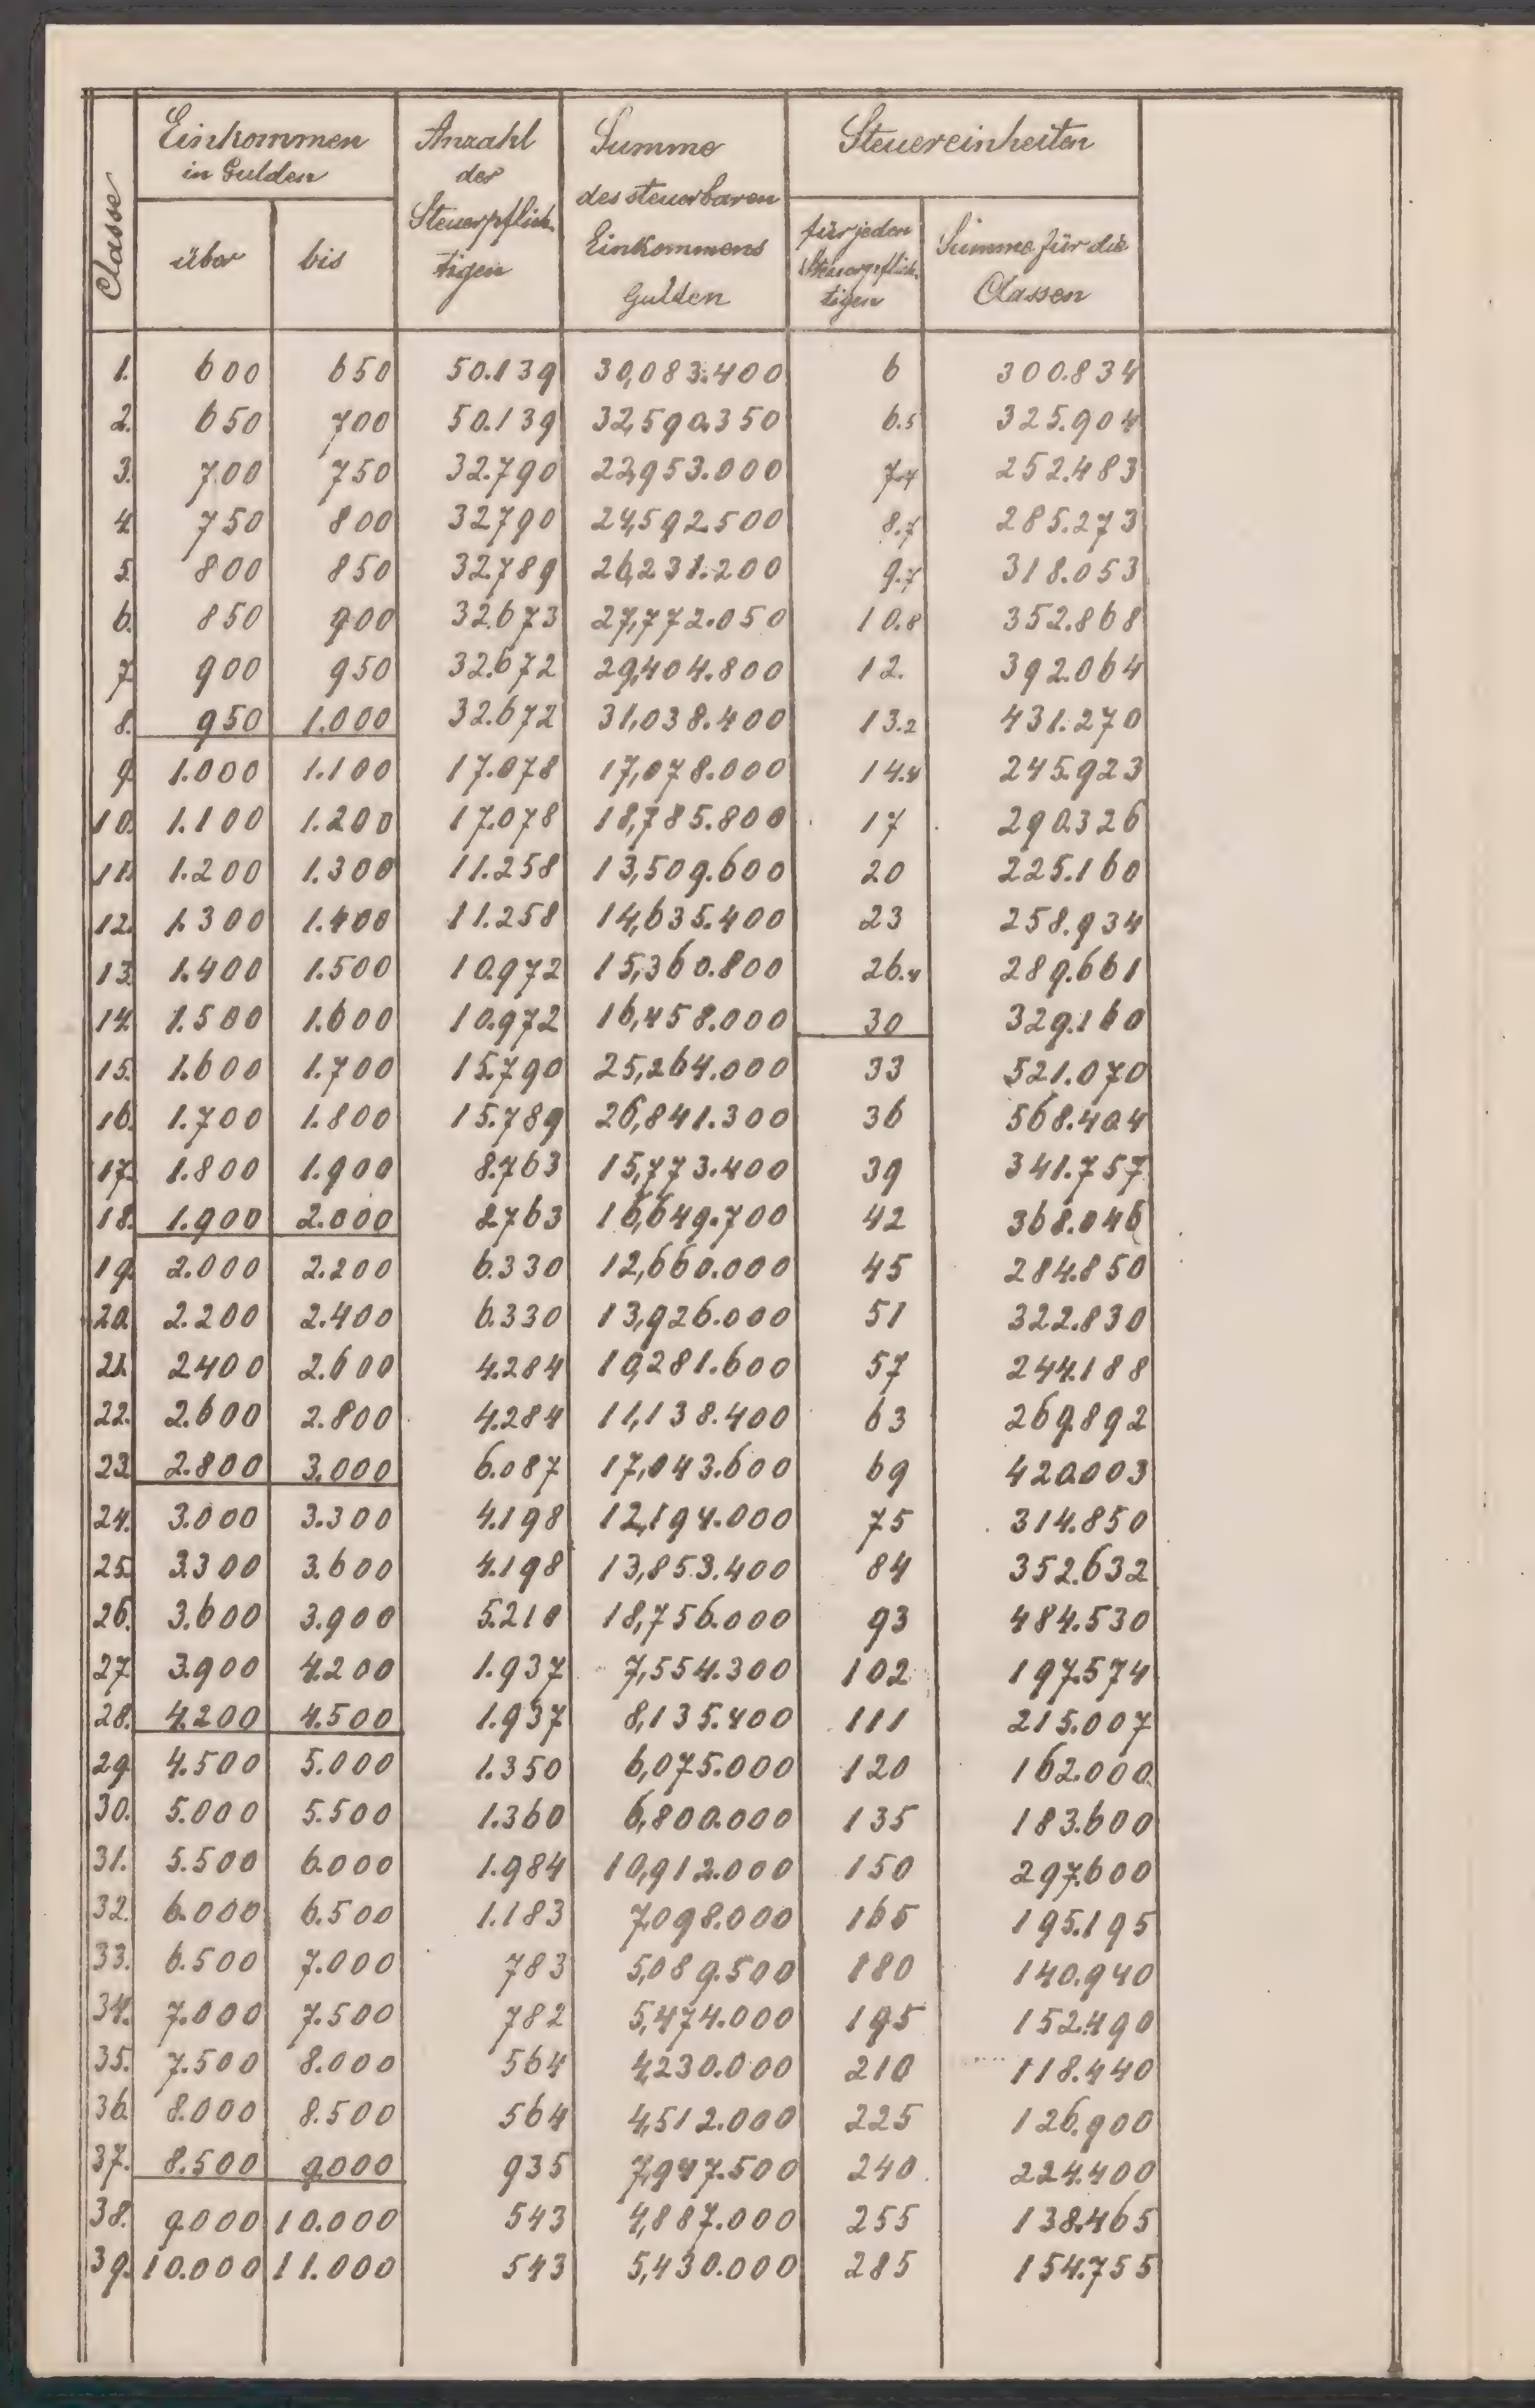 Classe
Einkommen
in Gulden
über bis
Anzahl
der
Steuerpflich-
tigen
Summe
des steuerbaren
Einkommens
Gulden
Steuereinheiten
für jeden
Steuerpflich-
tigen
Summe für die
Classen
1. 600 650 50.139 30,083.400 6 300.834
2. 650 700 50.139 32,590.350 6.5 325.904
3. 700 750 32.790 22,953.000 7.7 252.483
4. 750 800 32790 24,592500 8.7 285.273
5. 800 850 32.789 26,231.200 9.7 318.053
6. 850 900 32.673 27,772.050 10.8 352.868
7. 900 950 32.672 29,404.800 12. 392.064
8. 950 1.000 32.672 31,038.400 13.2 431.270
9. 1.000 1.100 17.078 17,078.000 14.4 245.923
10. 1.100 1.200 17.078 18,785.800 17 290.326
11. 1.200 1.300 11.258 13,509.600 20 225.160
12. 1.300 1.400 11.258 14,635.400 23 258.934
13. 1.400 1.500 10.972 15,360.800 26.4 289.661
14. 1.500 1.600 10.972 16,458.000 30 329.160
15. 1.600 1.700 15.790 25,264.000 33 521.070
16. 1.700 1.800 15.789 26,841.300 36 568.404
17. 1.800 1.900 8.763 15,773.400 39 341.757
18. 1.900 2.000 8.763 16,649.700 42 368.046
19. 2.000 2.200 6.330 12,660.000 45 284.850
20. 2.200 2.400 6.330 13,926.000 51 322.830
21. 2400 2.600 4.284 10,281.600 57 244.188
22. 2.600 2.800 4.284 11,138.400 63 269.892
23. 2.800 3.000 6.087 17,043.600 69 420.003
24. 3.000 3.300 4.198 12,194.000 75 314.850
25. 3.300 3.600 4.198 13,853.400 84 352.632
26. 3.600 3.900 5.210 18,756.000 93 484.530
27. 3.900 4.200 1.937 7,554.300 102 197.574
28. 4.200 4.500 1.937 8,135.400 111 215.007
29. 4.500 5.000 1.350 6,075.000 120 162.000
30. 5.000 5.500 1.360 6,800.000 135 183.600
31. 5.500 6.000 1.984 10,912.000 150 297.600
32. 6.000 6.500 1.183 7,098.000 165 195.195
33. 6.500 7.000 783 5,089.500 180 140.940
34. 7.000 7.500 782 5,474.000 195 152.490
35. 7.500 8.000 564 4,230.000 210 118.440
36. 8.000 8.500 564 4,512.000 225 126.900
37. 8.500 9.000 935 7,947.500 240 224.400
38. 9.000 10.000 543 4,887.000 255 138.465
39. 10.000 11.000 543 5,430.000 285 154.755